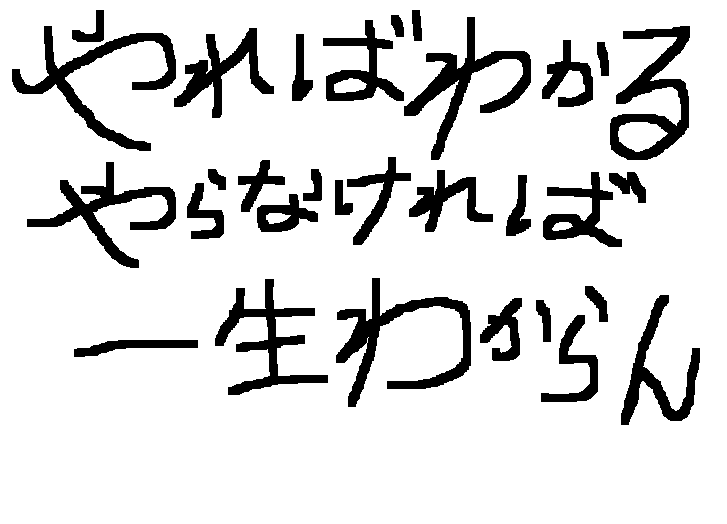 やればわかる
やらなければ
一生わからん